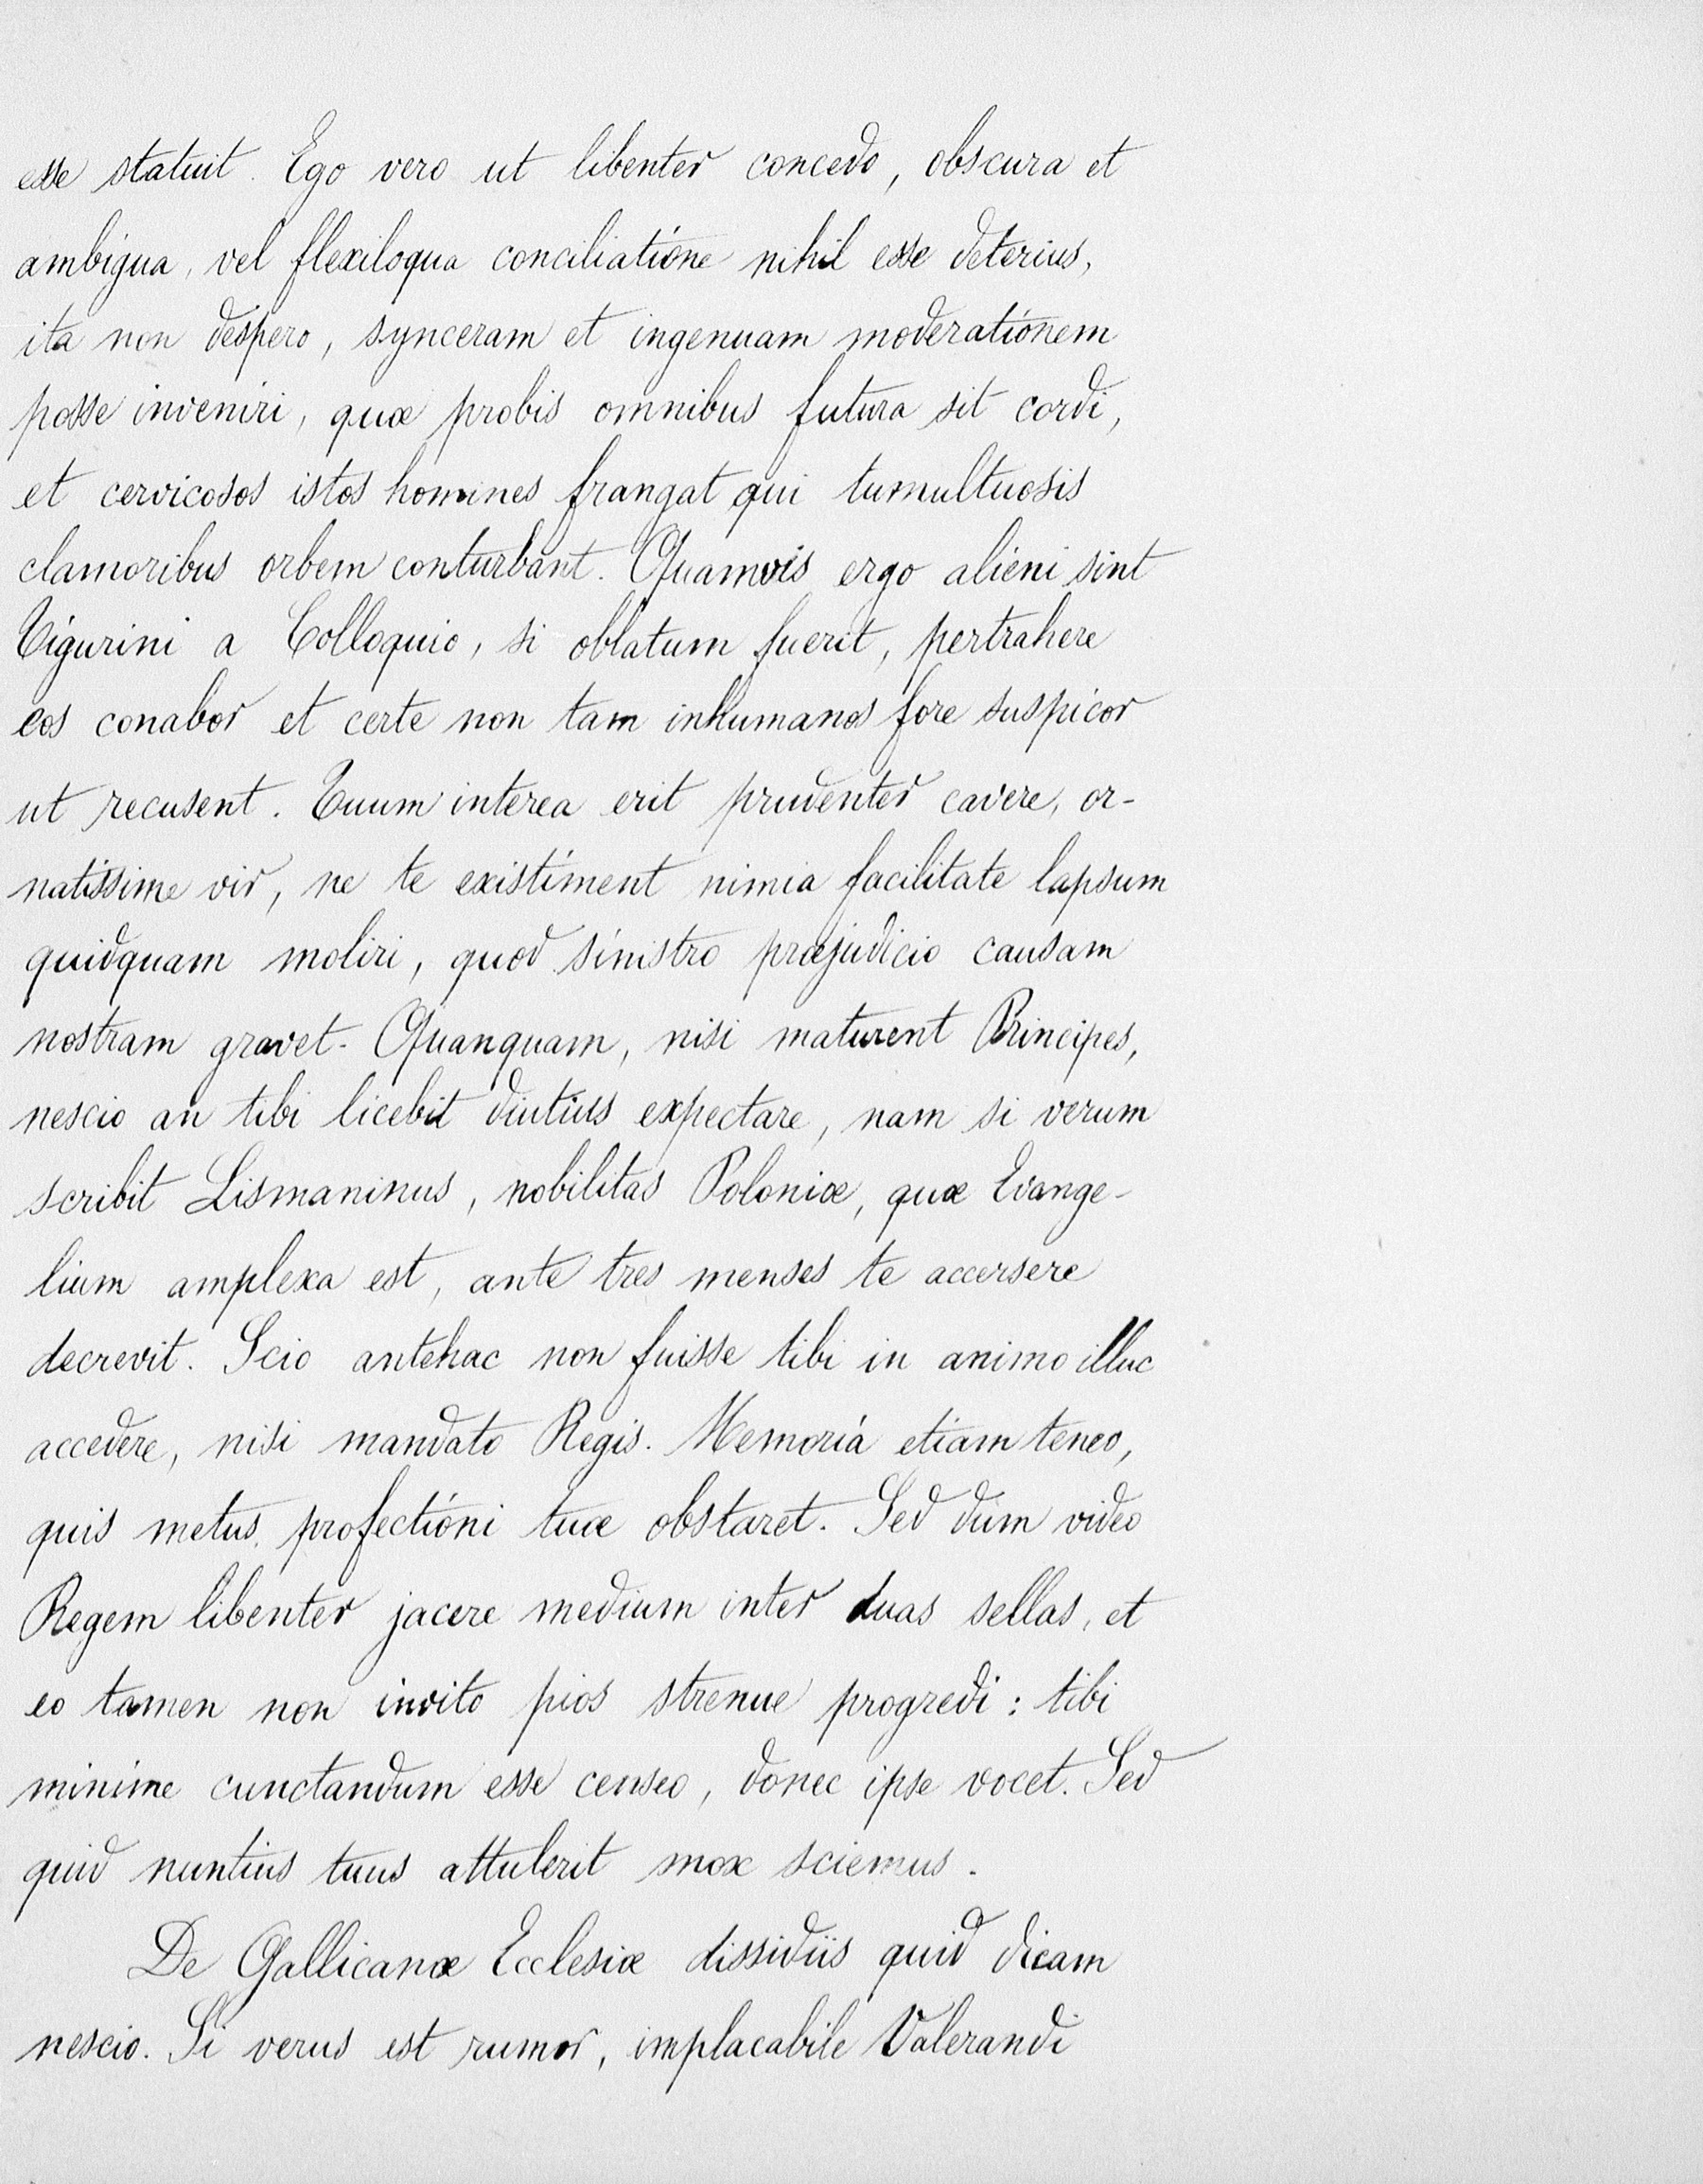 esse statuit. Ego vero ut libenter concedo, obscura et
ambigua, vel flexiloqua conciliatione nihil esse deterius,
ita non despero, synceram et ingenuam moderationem
posse inveniri, quæ probis omnibus futura sit cordi,
et cervicosos istos homines frangat qui tumultuosis
clamoribus orbem conturbant. Quamvis ergo alieni sint
Tigurini a Colloquio, si oblatum fuerit, pertrahere
eos conabor et certe non tam inhumanos fore suspicor
ut recusent. Tuum interea erit prudenter cavere, or-
natissime vir, ne te existiment nimia facilitate lapsum
quidquam moliri, quod sinistro præjudicio causam
nostram gravet. Quanquam, nisi maturent Principes,
nescio an tibi licebit diutius expectare, nam si verum
scribit Lismaninus, nobilitas Poloniæ, quæ Evange-
lium amplexa est, ante tres menses te accersere
decrevit. Scio antehac non fuisse tibi in animo illuc
accedere, nisi mandato Regis. Memoriá etiam teneo,
quis metus, profectioni tuæ obstaret. Sed dum video
Regem libenter jacere medium inter duas sellas, et
eo tamen non invito pios strenue progredi : tibi
minime cunctandum esse censeo, donec ipse vocet. Sed
quid nuntius tuus attulerit mox sciemus.
De Gallicanæ Ecclesiæ dissidiis quid dicam
nescio. Si verus est rumor, implacabile Valerandi